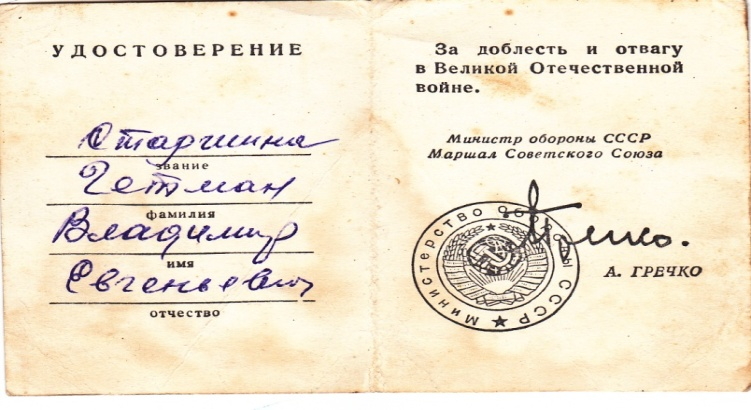 УДОСТОВЕРЕНИЕ
Старшина
звание
Гетман
фамилия
Владимир
имя
Евгеньевич
отчество
За доблесть и отвагу
в Великой Отечественной
войне.
Министр обороны СССР
Маршал Советского Союза
Гречко.
А. ГРЕЧКО
Министерство Обороны СССР